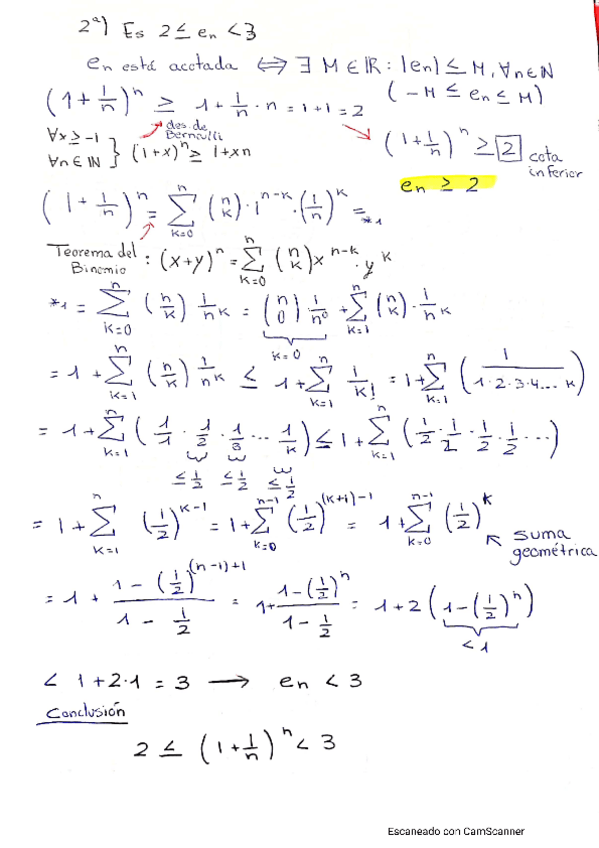 2ª) Es 2 ≤ en < 3
en está acotada ⟺ ∃ M ∈ ℝ : |en| ≤ M, ∀n∈ℕ
(-M ≤ en ≤ M)
(1 + 1/n)^n ≥ 1 + 1/n · n = 1 + 1 = 2
des. de Bernulli
∀x ≥ -1
∀n ∈ ℕ } (1+x)^n ≥ 1+xn
(1 + 1/n)^n ≥ 2 cota inferior
en ≥ 2
(1 + 1/n)^n = ∑_{k=0}^{n} (n k) · 1^{n-k} · (1/n)^k = *1
Teorema del Binomio : (x+y)^n = ∑_{k=0}^{n} (n k) x^{n-k} · y^k
*1 = ∑_{k=0}^{n} (n k) 1/n^k = (n 0) 1/n^0 + ∑_{k=1}^{n} (n k) · 1/n^k
k=0
= 1 + ∑_{k=1}^{n} (n k) 1/n^k ≤ 1 + ∑_{k=1}^{n} 1/k! = 1 + ∑_{k=1}^{n} (1/(1·2·3·4... k))
= 1 + ∑_{k=1}^{n} (1/1 · 1/2 · 1/3 ... 1/k) ≤ 1 + ∑_{k=1}^{n} (1/2 · 1/2 · 1/2 · 1/2 ...)
≤ 1/2 ≤ 1/2 ≤ 1/2
= 1 + ∑_{k=1}^{n} (1/2)^{k-1} = 1 + ∑_{k=0}^{n-1} (1/2)^{(k+1)-1} = 1 + ∑_{k=0}^{n-1} (1/2)^k
suma geométrica
= 1 + (1 - (1/2)^{(n-1)+1})/(1 - 1/2) = 1 + (1 - (1/2)^n)/(1 - 1/2) = 1 + 2 (1 - (1/2)^n)
< 1
< 1 + 2·1 = 3 → en < 3
Conclusión
2 ≤ (1 + 1/n)^n < 3
Escaneado con CamScanner